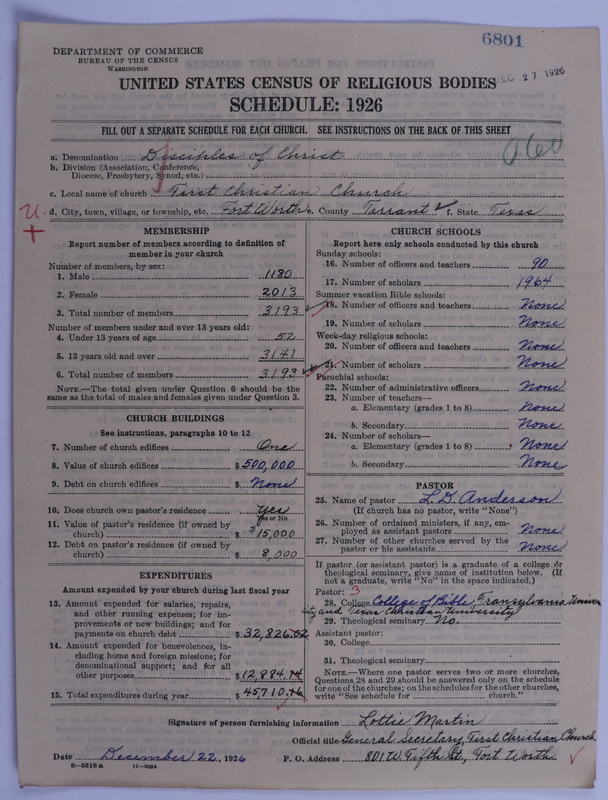 6801
DEPARTMENT OF COMMERCE
BUREAU OF THE CENSUS
WASHINGTON
DEC 27 1926
UNITED STATES CENSUS OF RELIGIOUS BODIES
SCHEDULE: 1926
FILL OUT A SEPARATE SCHEDULE FOR EACH CHURCH. SEE INSTRUCTIONS ON THE BACK OF THIS SHEET
a. Denomination Disciples of Christ
b. Division (Association, Conference,
Diocese, Presbytery, Synod, etc.)
c. Local name of church First Christian Church
d. City, town, village, or township, etc. Fort Worth e. County Tarrant f. State Texas
MEMBERSHIP
Report number of members according to definition of
member in your church
Number of members, by sex:
1. Male 1180
2. Female 2013
3. Total number of members 3193
Number of members under and over 13 years old:
4. Under 13 years of age 52
5. 13 years old and over 3141
6. Total number of members 3193
NOTE.—The total given under Question 6 should be
same as the total of males and females given under Question 3.
CHURCH BUILDINGS
See instructions, paragraphs 10 to 12
7. Number of church edifices One
8. Value of church edifices $500,000
9. Debt on church edifices $ None
10. Does church own pastor's residence? yes
Yes or No
11. Value of pastor's residence (if owned by
church) $15,000
12. Debt on pastor's residence (if owned by
church) $ 8,000
EXPENDITURES
Amount expended by your church during last fiscal year
13. Amount expended for salaries, repairs,
and other running expenses; for im-
provements or new buildings; and for
payments on church debt $32,826.02
14. Amount expended for benevolences, in-
cluding home and foreign missions; for
denominational support; and for all
other purposes $12,884.14
15. Total expenditures during year $45710.16
CHURCH SCHOOLS
Report here only schools conducted by this church
Sunday schools:
16. Number of officers and teachers 90
17. Number of scholars 1964
Summer vacation Bible schools:
18. Number of officers and teachers None
19. Number of scholars None
Week-day religious schools:
20. Number of officers and teachers None
21. Number of scholars None
Parochial schools:
22. Number of administrative officers None
23. Number of teachers—
a. Elementary (grades 1 to 8) None
b. Secondary None
24. Number of scholars—
a. Elementary (grades 1 to 8) None
b. Secondary None
PASTOR
25. Name of pastor L. D. Anderson
(If church has no pastor, write "None")
26. Number of ordained ministers, if any, em-
ployed as assistant pastors None
27. Number of other churches served by the
pastor or his assistants None
If pastor (or assistant pastor) is a graduate of a college or
theological seminary, give name of institution below. (If
not a graduate, write "No" in the space indicated.)
Pastor: 3
28. College College of Bible, Transylvania Univer
sity and Texas Christian University
29. Theological seminary No.
Assistant pastor:
30. College
31. Theological seminary
NOTE.—Where one pastor serves two or more churches,
Questions 28 and 29 should be answered only on the schedule
for one of the churches; on the schedules for the other churches,
write "See schedule for church."
Signature of person furnishing information Lottie Martin
Official title General Secretary, First Christian Church
Date December 22, 1926 P. O. Address 801 W. Fifth St., Fort Worth
8—5518a 11—9034